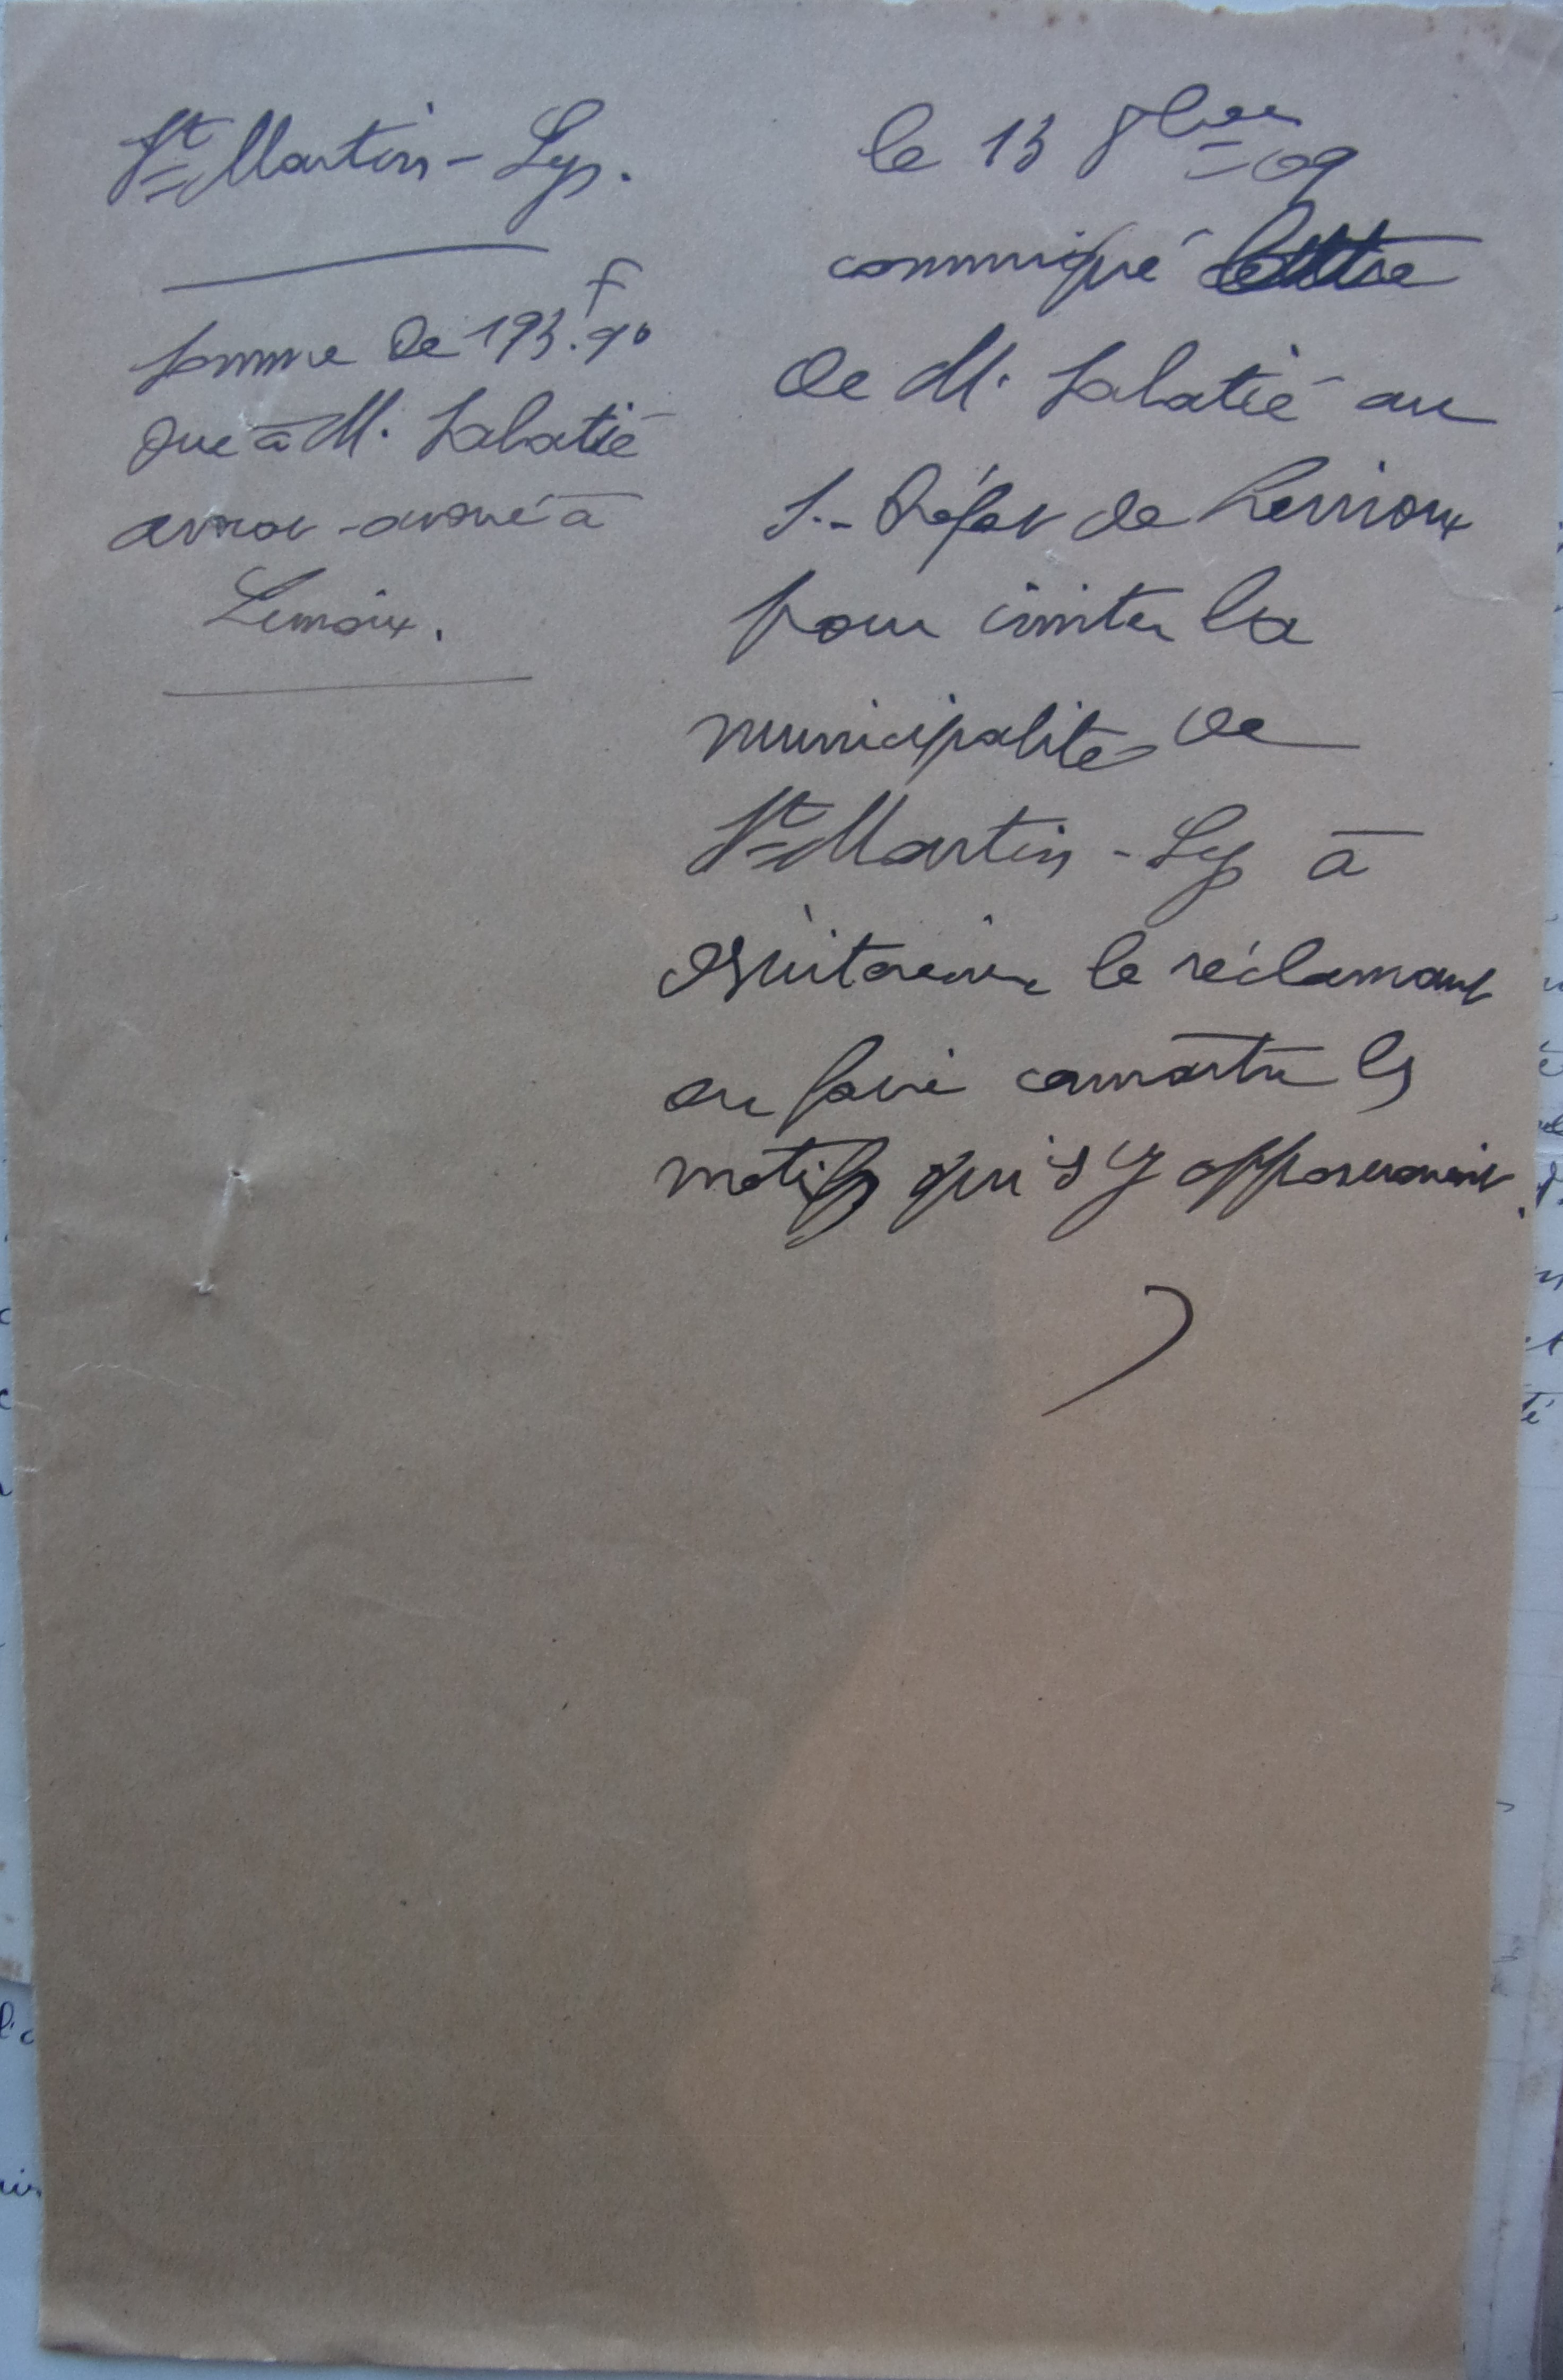 St Martin-Lys.
somme de 193f.90
due à M. Sabatié
avocat-avoué à
Limoux.
le 13 8bre 09
communiqué lettre
de M. Sabatié au
S.-Préfet de Limoux
pour inviter la
municipalité de
St Martin-Lys à
désintéresser le réclamant
ou faire connaitre les
motifs qui s'y opposeraient.